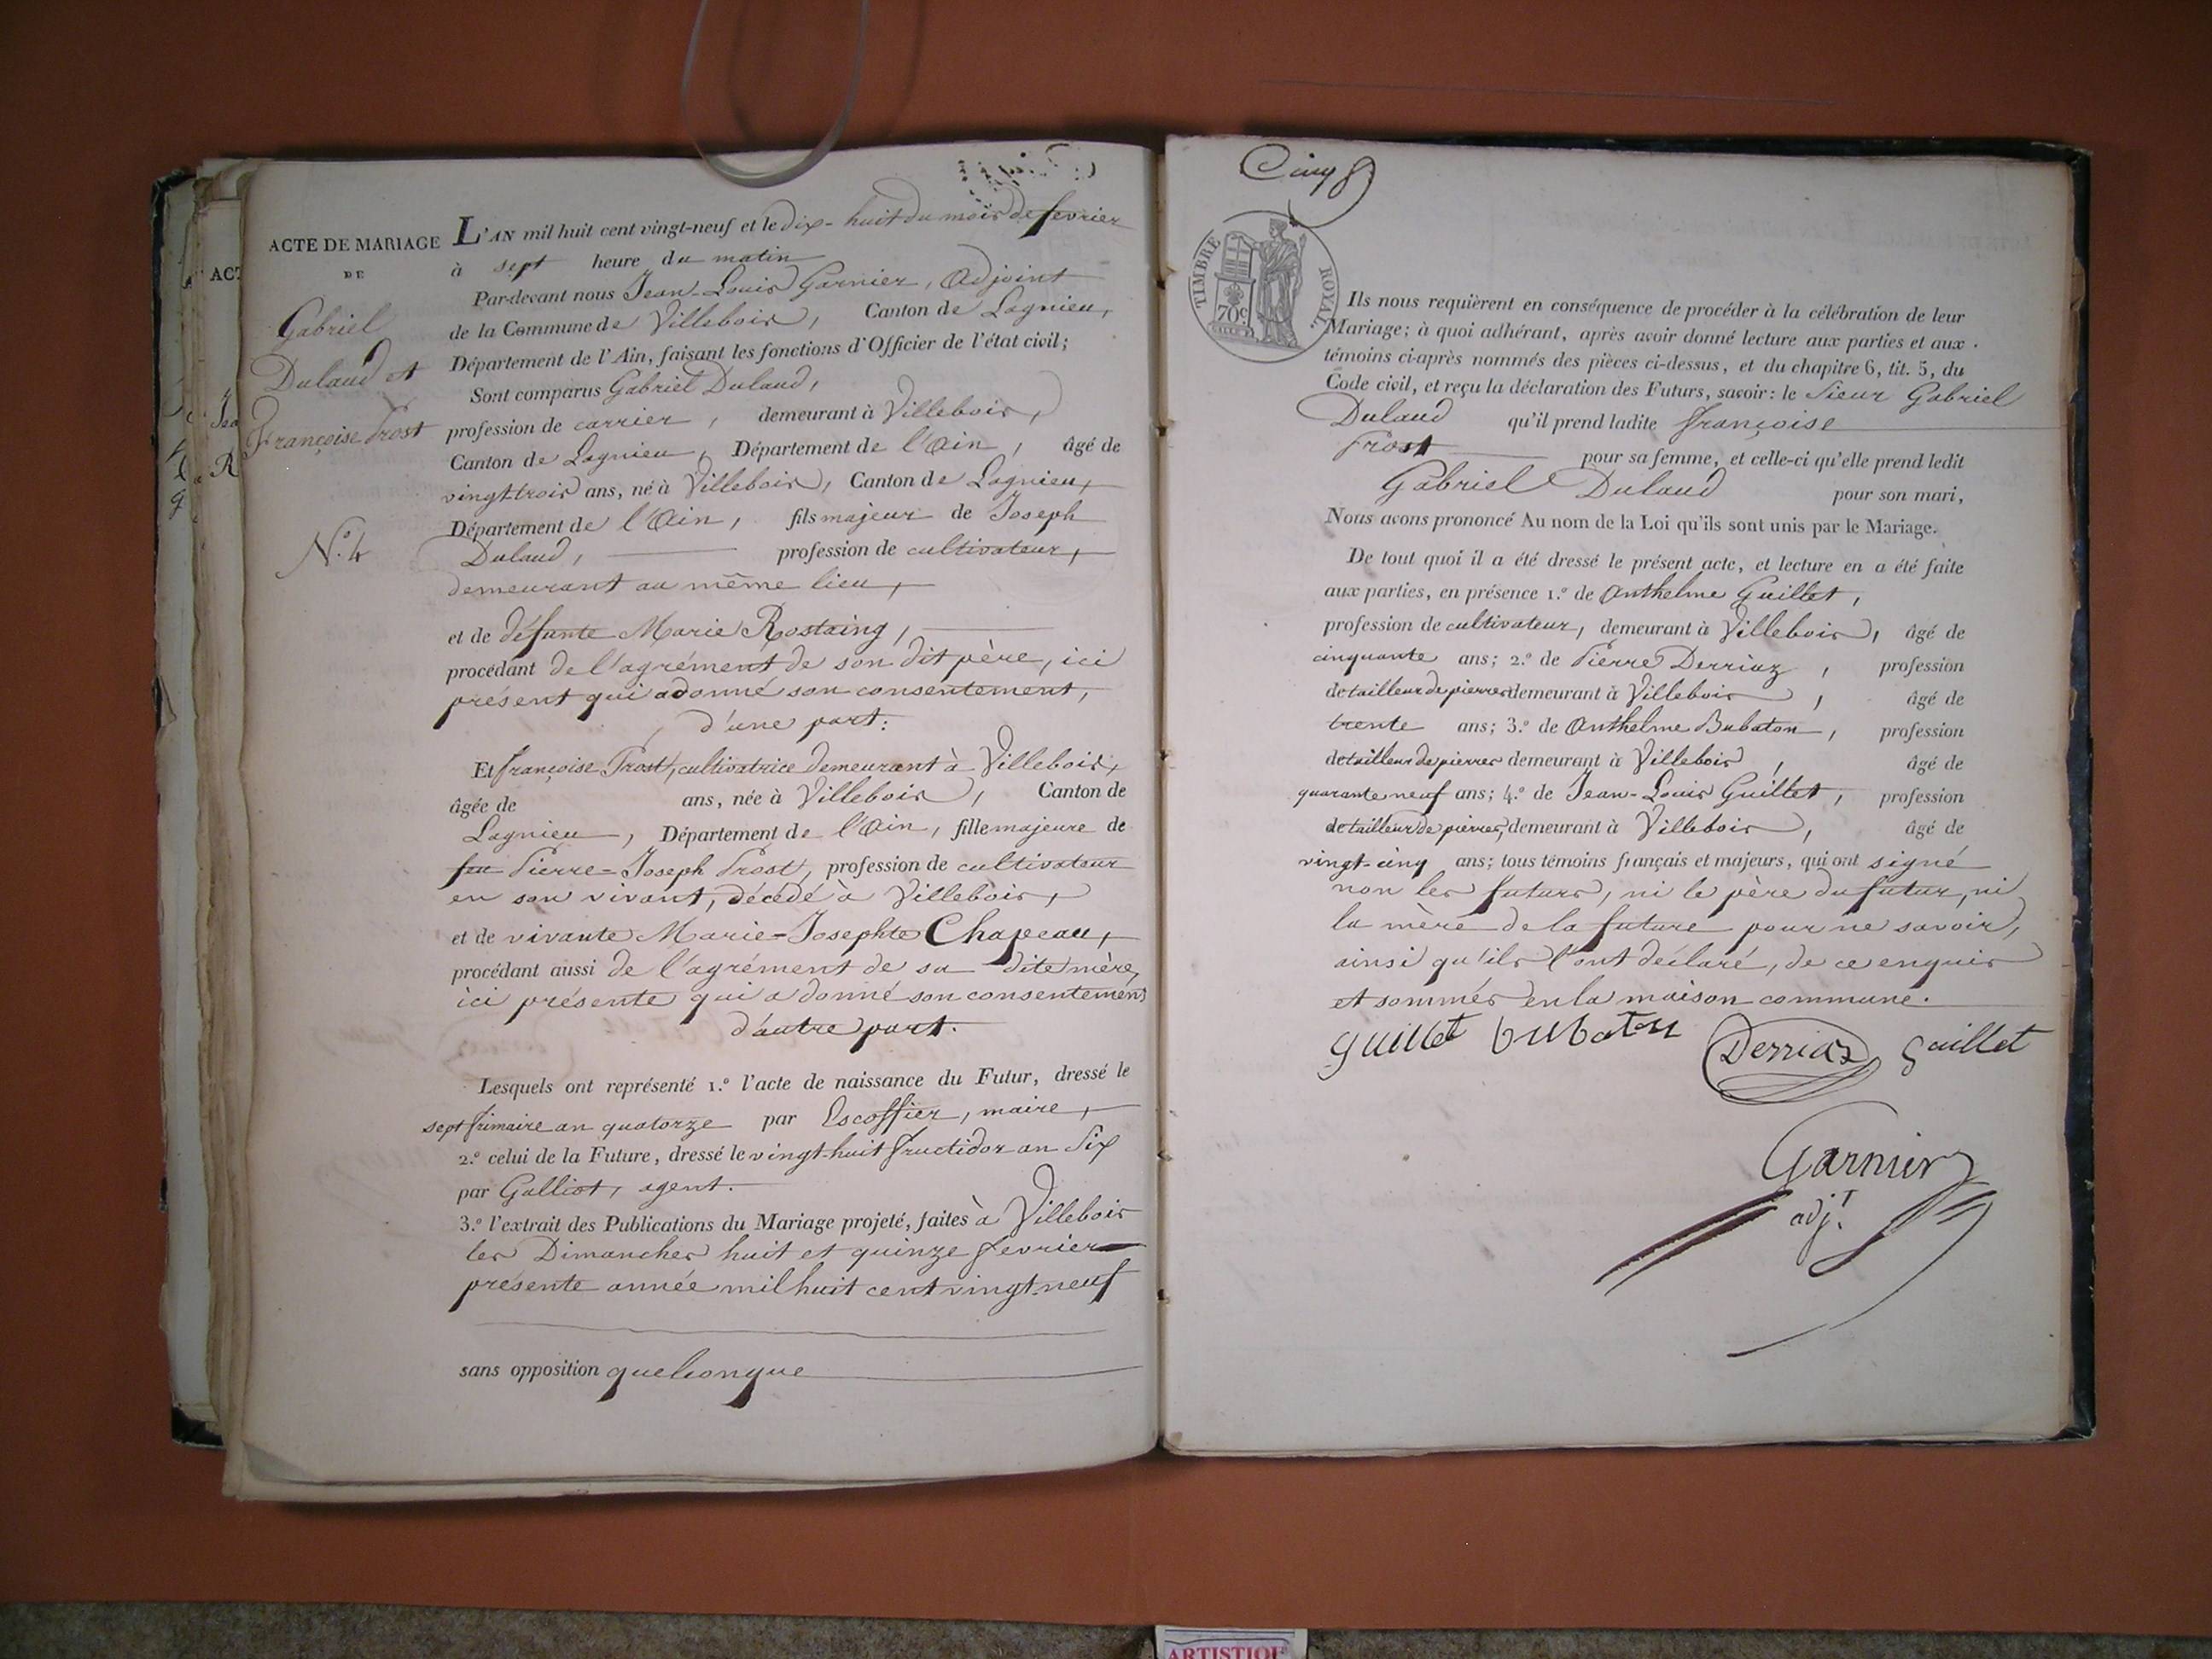 ACTE DE MARIAGE
DE
Gabriel
Dulaud et
Françoise Trost
N.º 4
L'AN mil huit cent vingt-neuf et le dix-huit du mois de fevrier
à sept heure du matin
Par-devant nous Jean-Louis Garnier, Adjoint
de la Commune de Villebois, Canton de Lagnieu,
Département de l'Ain, faisant les fonctions d'Officier de l'état civil;
Sont comparus Gabriel Dulaud,
profession de carrier, demeurant à Villebois,
Canton de Lagnieu, Département de l'Ain, âgé de
vingt-trois ans, né à Villebois, Canton de Lagnieu,
Département de l'Ain, fils majeur de Joseph
Dulaud, profession de cultivateur,
demeurant au même lieu,
et de défunte Marie Rostaing,
procédant de l'agrément de son dit père, ici
présent qui a donné son consentement,
d'une part:
Et françoise Trost, cultivatrice demeurant à Villebois,
âgée de ans, née à Villebois, Canton de
Lagnieu, Département de l'Ain, fille majeure de
feu Pierre-Joseph Trost, profession de cultivateur
en son vivant, décédé à Villebois,
et de vivante Marie-Josephte Chapeau,
procédant aussi de l'agrément de sa dite mère,
ici présente qui a donné son consentement
d'autre part.
Lesquels ont représenté 1.º l'acte de naissance du Futur, dressé le
sept frimaire an quatorze par Escoffier, maire,
2.º celui de la Future, dressé le vingt-huit fructidor an Six
par Galliot, agent.
3.º l'extrait des Publications du Mariage projeté, faites à Villebois
les Dimanches huit et quinze fevrier
présente année mil huit cent vingt-neuf
sans opposition quelconque
Cinq
TIMBRE ROYAL
70c
Ils nous requièrent en conséquence de procéder à la célébration de leur
Mariage; à quoi adhérant, après avoir donné lecture aux parties et aux
témoins ci-après nommés des pièces ci-dessus, et du chapitre 6, tit. 5, du
Code civil, et reçu la déclaration des Futurs, savoir: le Sieur Gabriel
Dulaud qu'il prend ladite françoise
Trost pour sa femme, et celle-ci qu'elle prend ledit
Gabriel Dulaud pour son mari,
Nous avons prononcé Au nom de la Loi qu'ils sont unis par le Mariage.
De tout quoi il a été dressé le présent acte, et lecture en a été faite
aux parties, en présence 1.º de Anthelme Guillet,
profession de cultivateur, demeurant à Villebois, âgé de
cinquante ans; 2.º de Pierre Derriaz, profession
de tailleur de pierres demeurant à Villebois, âgé de
trente ans; 3.º de Anthelme Bubaton, profession
de tailleur de pierres demeurant à Villebois, âgé de
quarante neuf ans; 4.º de Jean-Louis Guillet, profession
de tailleur de pierres, demeurant à Villebois, âgé de
vingt-cinq ans; tous témoins français et majeurs, qui ont signé
non les futurs, ni le père du futur, ni
la mère de la future pour ne savoir,
ainsi qu'ils l'ont déclaré, de ce enquis
et sommés en la maison commune.
Guillet bubaton Derriaz Guillet
Garnier
adj.t
ARTISTIQUE